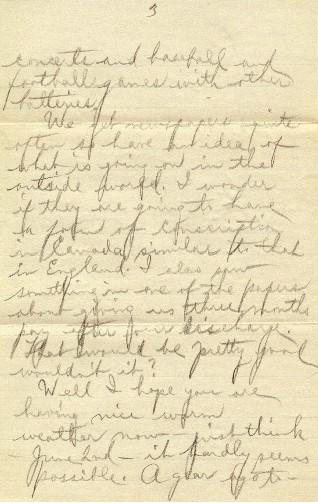 3
concerts and baseball and
football games with other
batteries.
We get newspapers quite
often so have an idea of
what is going on in the
outside world. I wonder
if they are going to have
a form of conscription
in Canada similar to that
in England. I also saw
something in one of the papers
about giving us three months
pay after our discharge.
That would be pretty good
wouldn't it?
Well I hope you are
having nice warm
weather now - just think
- June 2nd - it hardly seems
possible. A year ago to-